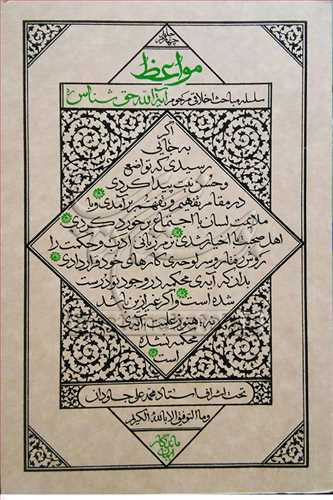 جلد چهارم
مواعظ
سلسله مباحث اخلاقی مرحوم آیة الله حق شناس ره
اگر
به جائی
رسیدی که تواضع
و حسن نیت پیدا کردی
در مقام تفهیم و تفهم برآمدی و با
ملایمت لسان با اجتماع برخورد کردی
اهل صحبت با اخیار شدی نرم زبانی، ادب و حکمت را
روش رفتار و سرلوحه‌ی کارهای خود قرار دادی
بدان که آیه‌ی محکمه در وجود تو درست
شده است و اگر غیر از این باشد
نه، هنوز علمت آیه‌ی
محکمه نشده
است
تحت اشراف استاد محمد علی جاودان
وما التوفیق الا بالله الکریم